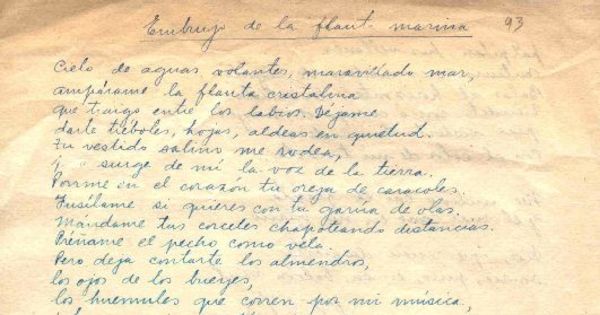 Embrujo de la flaut. marina 93
Cielo de aguas volantes, maravillado mar,
ampárame la flauta cristalina
que traigo entre los labios. Déjame
darte tréboles, hojas, aldeas en quietud.
Tu vestido salino me rodea,
surge de mí la voz de la tierra.
Ponme en el corazón tu oreja de caracoles.
Fusílame si quieres con tu garúa de olas.
Mándame tus corceles chapoteando distancias.
Préñame el pecho como vela.
Pero deja contarte los almendros,
los ojos de los bueyes,
los huemules que corren por mi música,